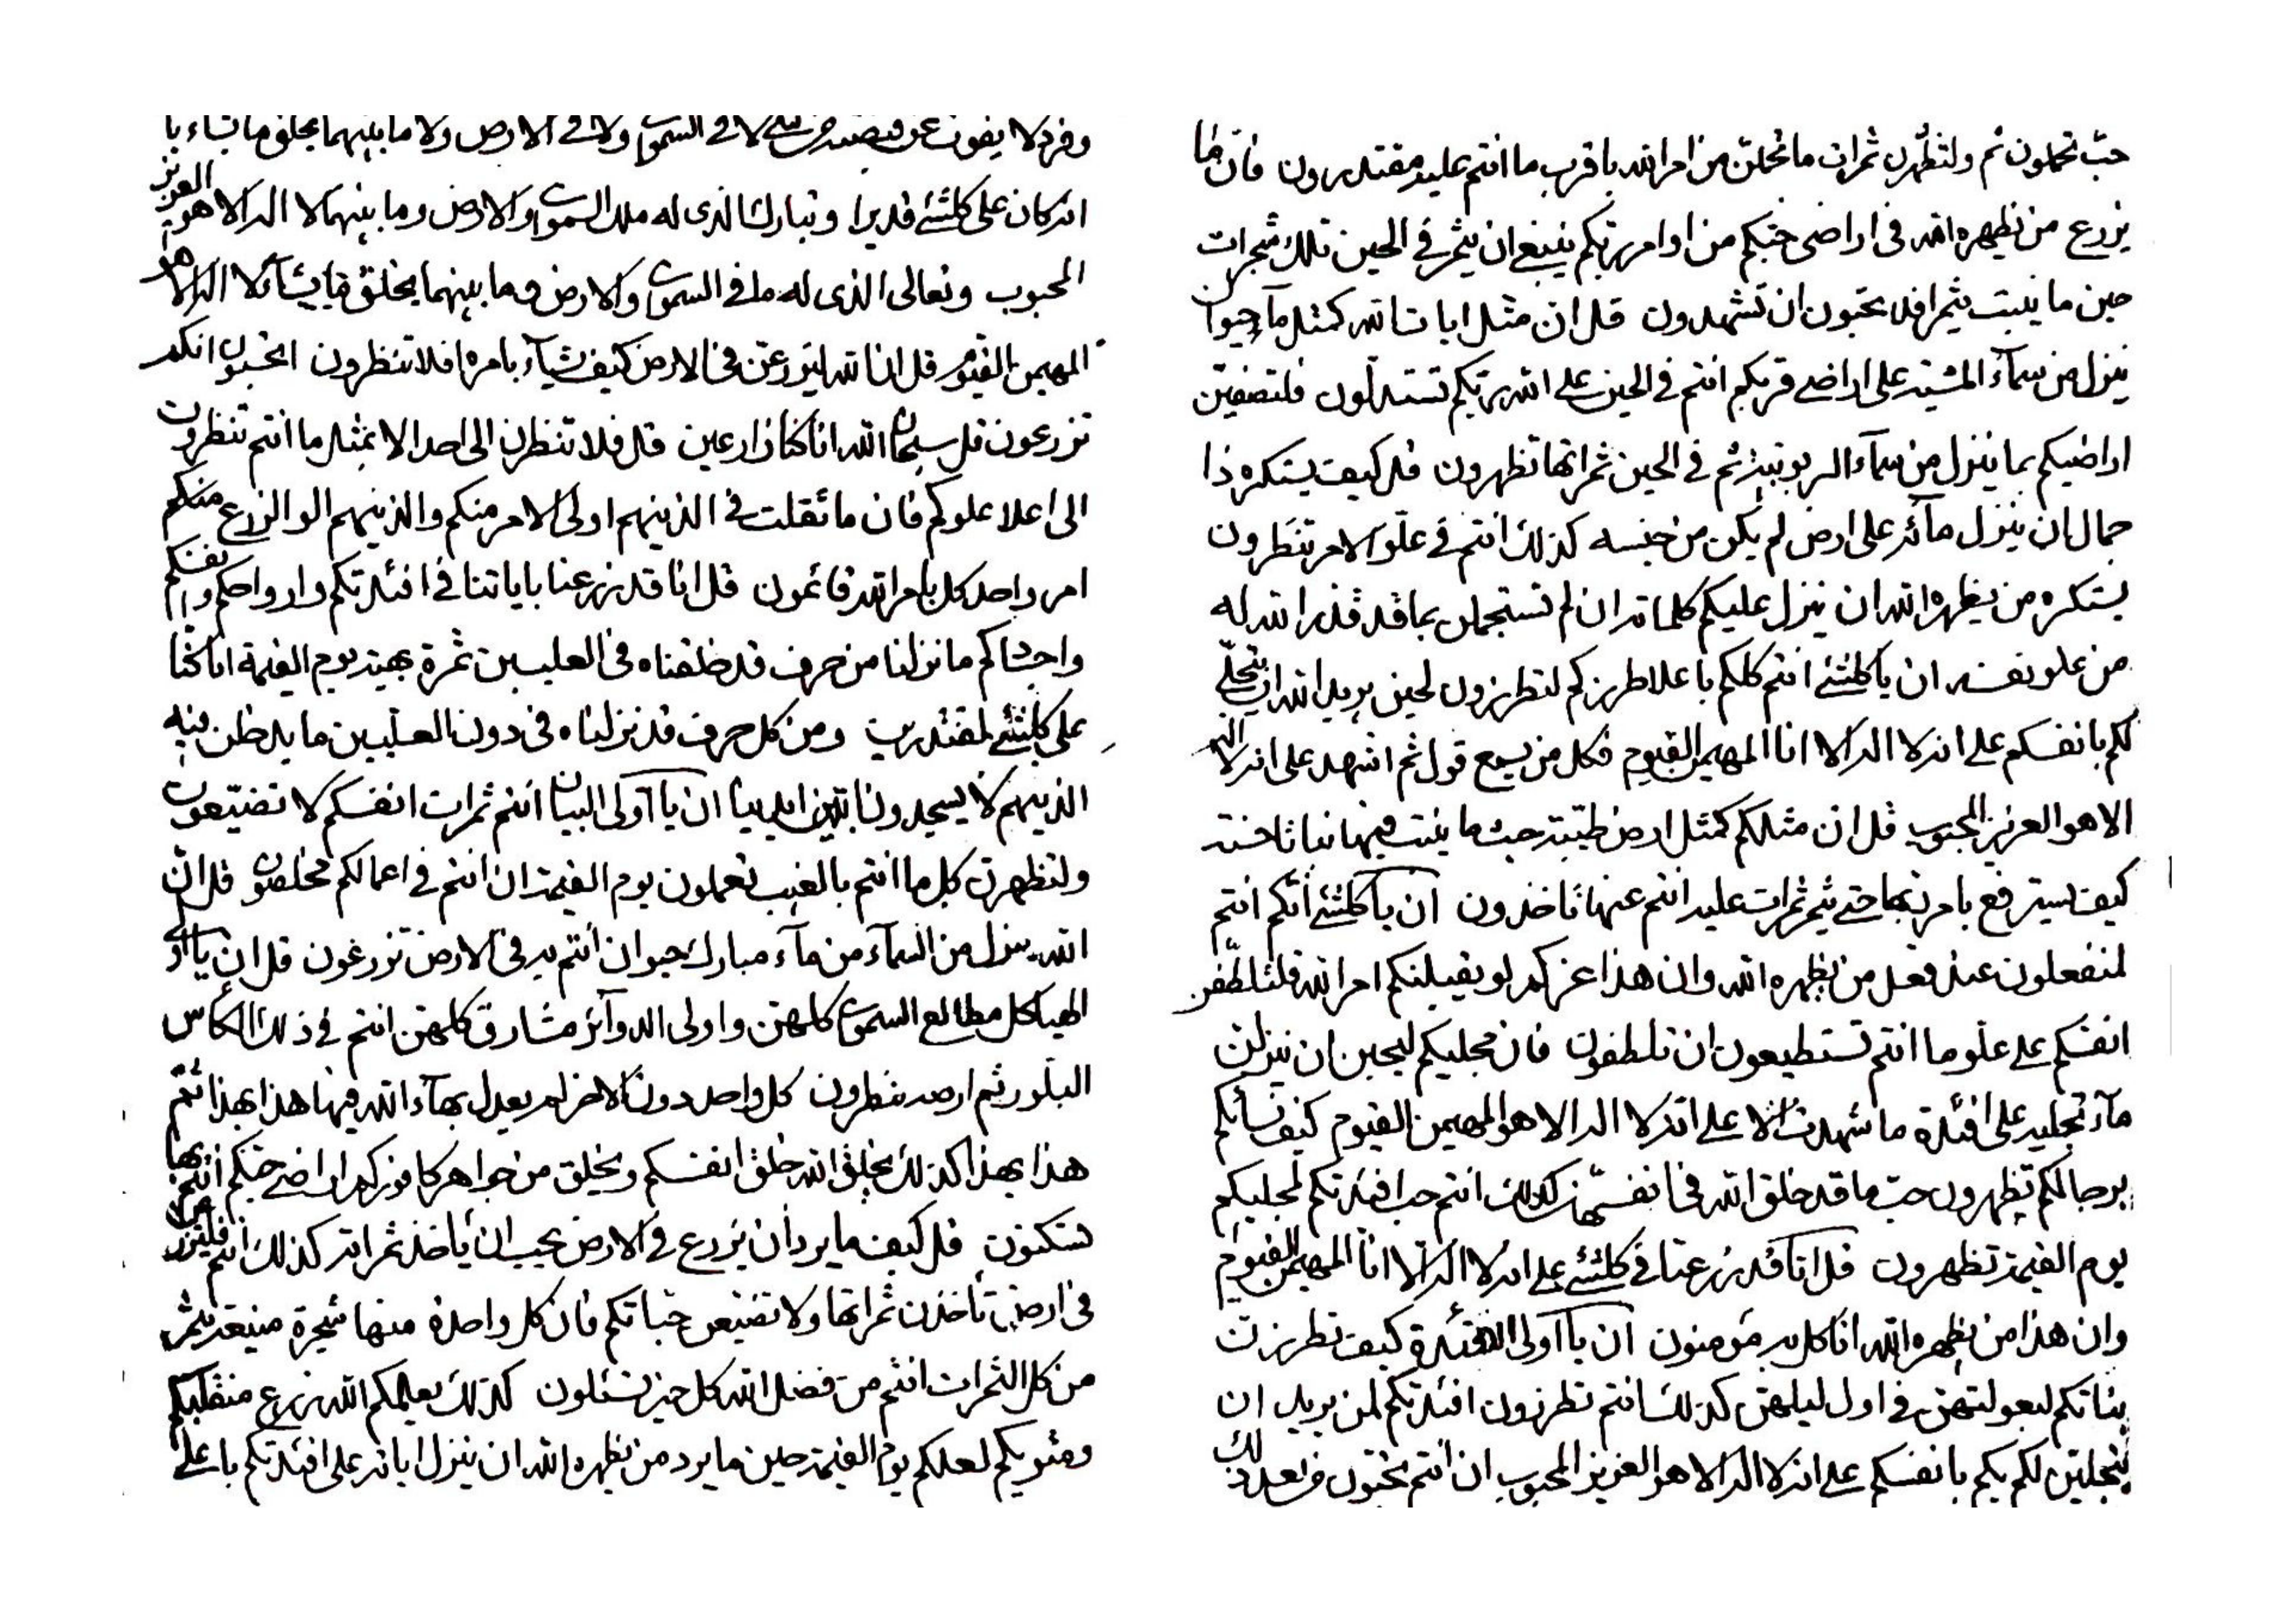 حبّ تحملون ثم ولتظهرن ثمرات ما تحملن من امر الله باقرب ما انتم عليه مقتدرون فان ما
يزرع من يظهره الله فى اراضى حبّكم من اوامر ربّكم ينبغى ان يثمر فى الحين تلك شجرات
حين ما ينبت يثمر افلا تحبّون ان تشهدون قل ان مثل ايات الله كمثل مآء حيوان
ينزل من سمآء المشية على اراضى قربكم انتم فى الحين على الله ربّكم تستدلّون فلتصفين
اراضيكم بما ينزل من سمآء الربوبية ثم فى الحين ثمراتها تظهرون قل كيف يستكره ذا
جمال ان ينزل مآئه على ارض لم يكن من جنسه كذلك انتم فى علوّ الامر تنظرون
يستكره من يظهره الله ان ينزل عليكم كلماته ان لم تستجملن بما قد قدر الله له
من علو نفسه ان يا كلشئ انتم كلكم باعلا طرزكم لتطرزون لحين يريد الله ان يتجلّى
لكم بانفسكم على انه لا اله الا انا المهيمن القيوم فكل من يسمع قولى ثم اشهد على انه لا اله
الا هو العزيز المحبوب قل ان مثلكم كمثل ارض طيّبة حيث ما ينبت فيها نباتا حسنة
كيف يسترفع بامر ربّها حتى يثمر ثمرات عليه انتم عنها تاخذون ان يا كلشئ انّكم انتم
لمنفعلون عند فعل من يظهره الله وان هذا عزكم لو يقبلنكم امر الله فلتلطّفن
انفسكم على علوّ ما انتم تستطيعون ان تلطفون فان مجليكم ليحبن ان ينزلن
مآء تجليه على افئدة ما شهدت الا على انه لا اله الا هو المهيمن القيوم كيف نسائكم
برجالكم تظهرون حبّ ما قد خلق الله فى انفسهن كذلك انتم حب افئدتكم لمجليكم
يوم القيمة تظهرون قل انا قد زرعنا فى كلشئ على انه لا اله الا انا المهيمن القيوم
وان هذا من يظهره الله انا كل به مؤمنون ان يا اولى الافئدة كيف تطرزت
بناتكم لبعولتهن فى اول ليلهن كذلك انتم تطرزون افئدتكم لمن يريد ان
يتجلين لكم بكم بانفسكم على انه لا اله الا هو العزيز المحبوب ان انتم تحبّون من بعد ذلك
وفرد لا يفوت عن قبضته من شئ لا فى السموات ولا فى الارض ولا ما بينهما يخلق ما يشاء با
انه كان على كلشئ قديرا وتبارك الذى له ملك السموات والارض وما بينهما لا اله الا هو العزيز
المحبوب وتعالى الذى له ما فى السموات والارض وما بينهما يخلق ما يشآء لا اله الا هو
المهيمن القيوم قل ان الله ليزرعن فى الارض كيف يشآء بامره افلا تنظرون اتحسبون انكم
تزرعون قل سبحان الله انا كنا زارعين قل فلا تنظرن الى احد الا بمثل ما انتم تنظرون
الى اعلا علوكم فان ما ثقلت فى الذينهم اولى الامر منكم والذينهم الو الزرع منكم
امر واحد كل بامر الله قائمون قل انا قد زرعنا باياتنا فى افئدتكم وارواحكم وانفسكم
واجسادكم ما نزلنا من حرف قد خلقناه فى العليين ثمرة بهية يوم القيمة انا كنا
على كلشئ لمقتدرين ومن كل حرف قد نزلناه فى دون العليين ما يدخلن فيه
الذينهم لا يسجدون لله ان يا اولى البيان انتم ثمرات انفسكم لا تضيّعون
ولتظهرن كل ما انتم بالغيب تعملون يوم القيمة ان انتم فى اعمالكم مخلصون قل ان
الله ينزل من السمآء من مآء مبارك حيوان انتم به فى الارض تزرعون قل ان يا اولى
الهياكل مطالع السموع كلهن واولى الدوآئر مشارق كلهن انتم فى ذلك الكأس
البلور ثم ارضه تنظرون كل واحد دون الاخر لم يعدل بهآء الله فيها هذا بهذا ثم
هذا بهذا كذلك يخلق الله خلق انفسكم ويخلق من جواهر كافوركم اراضى حبّكم انتم بها
تسكنون قل كيف ما يرد ان يزرع فى الارض يحب ان ياخذ ثمراته كذلك انتم فلتزرعن
فى ارض تأخذن ثمراتها ولا تضيّعن حبّاتكم فان كل واحدة منها شجرة منيعة يثمر
من كل الثمرات انتم من فضل الله كل حين تسئلون كذلك يعلمكم الله زرع منقلبكم
ومثويكم لعلكم يوم القيمة حين ما يرد من يظهره الله ان ينزل اياته على افئدتكم باعلى